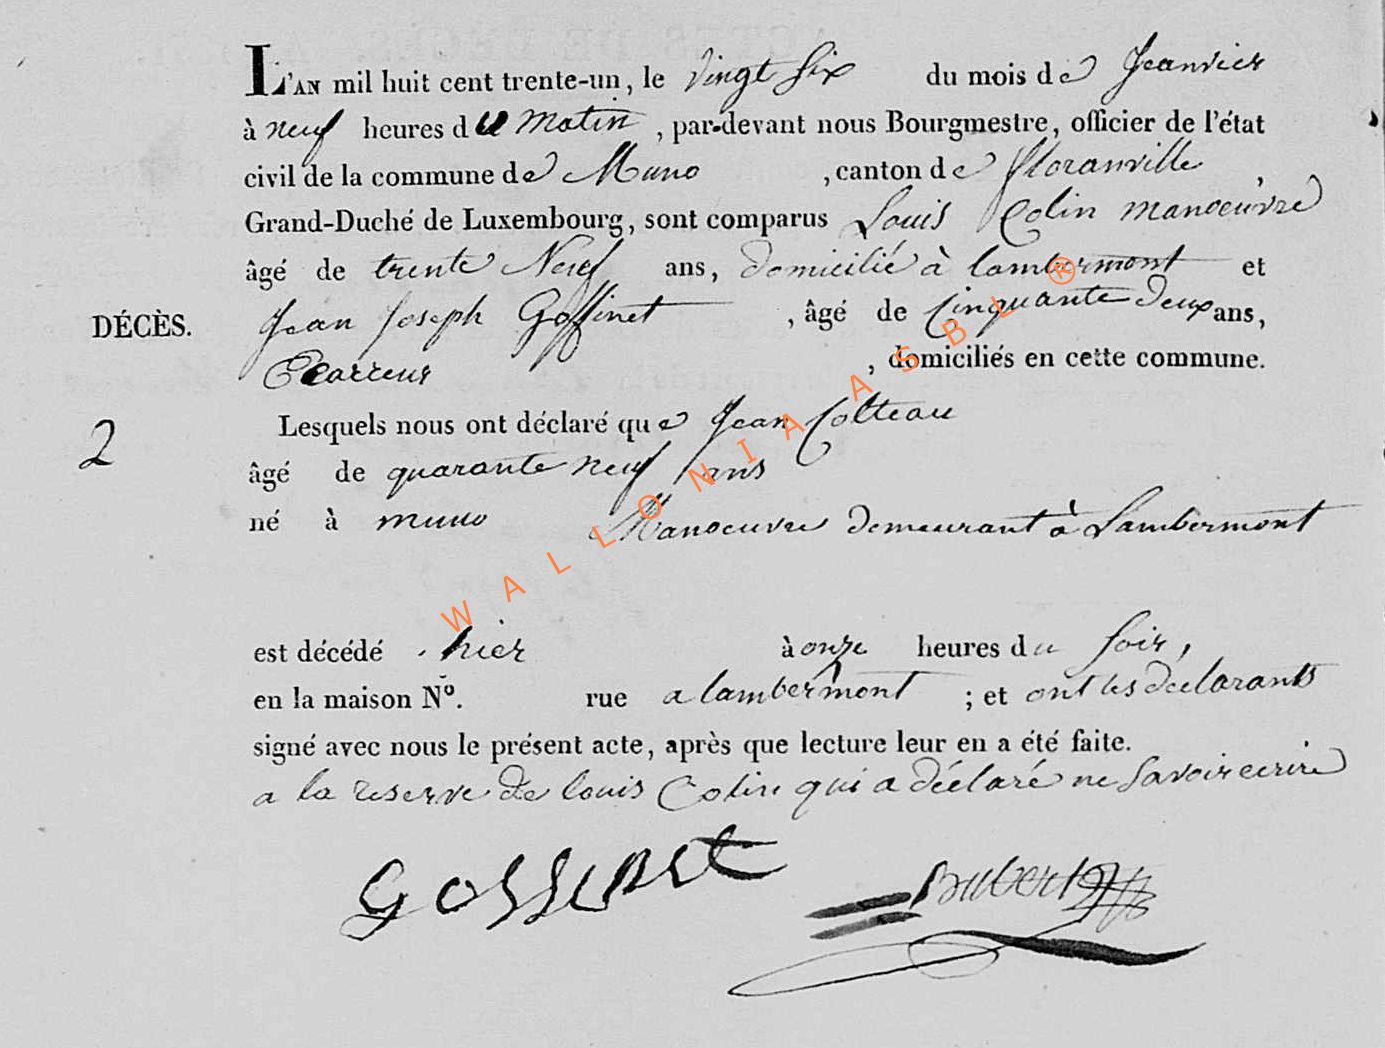 L'AN mil huit cent trente-un, le vingt six du mois de Jeanvier
à neuf heures du matin, par-devant nous Bourgmestre, officier de l'état
civil de la commune de Muno, canton de floranville,
Grand-Duché de Luxembourg, sont comparus Louis Colin manoeuvre
âgé de trente Neuf ans, domicilié à lambermont et
DÉCÈS. Jean Joseph Goffinet, âgé de Cinquante deux ans,
, domiciliés en cette commune.
2 Lesquels nous ont déclaré que Jean Colteau
âgé de quarante neuf ans
né à muno Manoeuvre demeurant à Lambermont
est décédé hier à onze heures du soir,
en la maison Nº. rue a lambermont ; et ont les déclarants
signé avec nous le présent acte, après que lecture leur en a été faite.
a la reserve de louis Colin qui a déclaré ne Savoir ecrire
Goffinet
WALLONIA ASBL ®